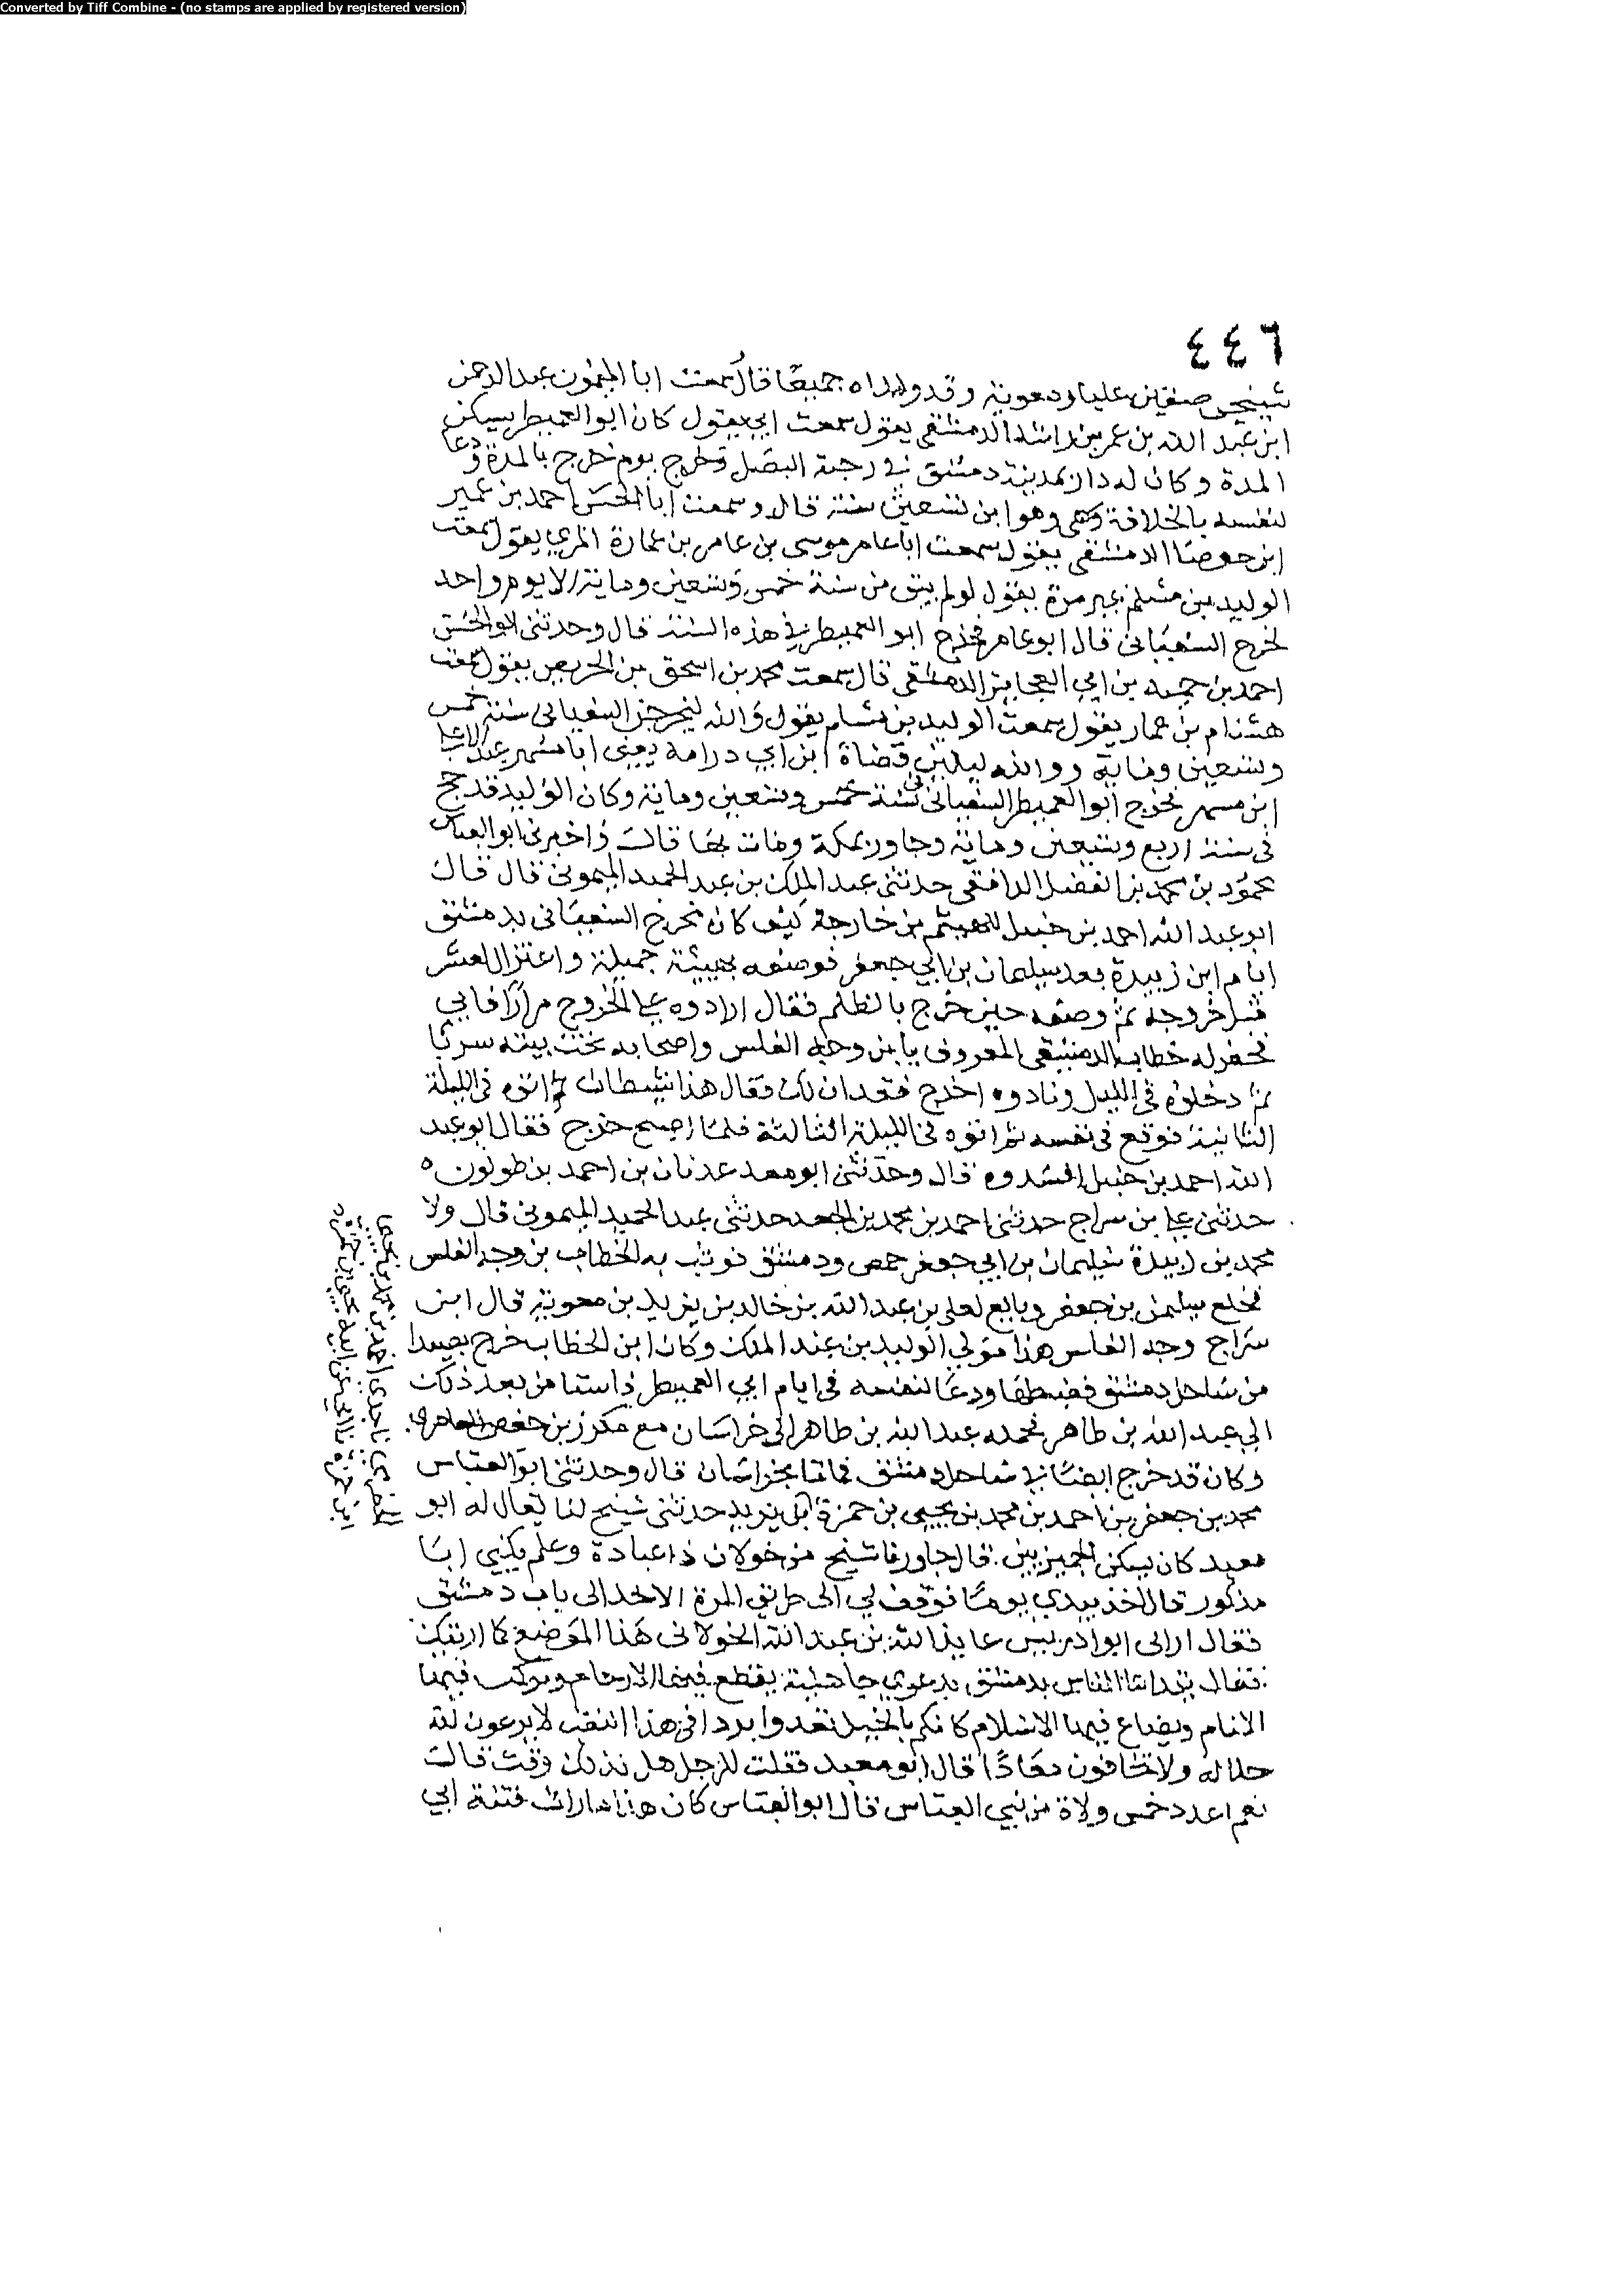 Converted by Tiff Combine - (no stamps are applied by registered version)
٤٤٦
شيخي صفين عليا ومعوية وقد ولداه جميعا قال سمعت ابا الميمون عبد الرحمن
ابن عبد الله بن عمر بن راشد الدمشقي يقول سمعت ابي يقول كان ابو العميطر يسكن
المدة وكان له دار بمدينة دمشق في رحبة البصل وخرج يوم خرج بالمدة ودعا
لنفسه بالخلافة وهو ابن تسعين سنة قال وسمعت ابا الحسن احمد بن عمير
ابن حوصا الدمشقي يقول سمعت ابا عامر موسى بن عامر بن عمارة المري يقول سمعت
الوليد بن مسلم غير مرة يقول لو لم يبق من سنة خمس وتسعين وماية الا يوم واحد
لخرج السفياني قال ابو عامر فخرج ابو العميطر في هذه السنة قال وحدثني ابو الحسن
احمد بن حميد بن ابي العجايز الدمشقي قال سمعت محمد بن اسحق بن الحريص يقول سمعت
هشام بن عمار يقول سمعت الوليد بن مسلم يقول والله ليخرجن السفياني سنة خمس
وتسعين وماية ووالله ليلين قضاة ابن ابي درامة يعني ابا مسهر عبد الاعلى
ابن مسهر فخرج ابو العميطر السفياني في سنة خمس وتسعين وماية وكان الوليد قد حج
في سنة اربع وتسعين وماية وجاور بمكة ومات بها قال واخبرني ابو العباس
محمود بن محمد بن الفضل الرافقي حدثني عبد الملك بن عبد الحميد الميموني قال قال
ابو عبد الله احمد بن حنبل للهيثم بن خارجة كيف كان مخرج السفياني بدمشق
ايام ابن زبيدة بعد سليمان بن ابي جعفر فوصفه بهيئة جميلة واعتزال للشر
قبل خروجه ثم وصفه حين خرج بالظلم فقال ارادوه على الخروج مرارا فابى
فحفر له خطاب الدمشقي المعروف بابن وجه الفلس واصحابه تحت بيته سربا
ثم دخلوه في الليل ونادوه اخرج فقد ان لك فقال هذا شيطان ثم اتوه في الليلة
الثانية فوقع في نفسه ثم اتوه في الليلة الثالثة فلما اصبح خرج فقال ابو عبد
الله احمد بن حنبل افسدوه قال وحدثني ابو معد عدنان بن احمد بن طولون ه
حدثني علي بن سراج حدثني احمد بن محمد بن الجعد حدثني عبد الحميد الميموني قال ولا
محمد بن زبيدة سليمان بن ابي جعفر حمص ودمشق فوثب به الخطاب بن وجه الفلس
فخلع سليمن بن جعفر وبايع لعلي بن عبد الله بن خالد بن يزيد بن معوية قال ابن
سراج وجه الفلس هذا مولى الوليد بن عبد الملك وكان ابن الخطاب خرج بصيدا
من ساحل دمشق فضبطها ودعا لنفسه في ايام ابي العميطر ذاستامن بعد ذلك
الي عبد الله بن طاهر فحمله عبد الله بن طاهر الى خراسان مع مكرز بن حفص العامري
وكان قد خرج ايضا في ساحل دمشق فماتا بخراسان قال وحدثني ابو العباس
محمد بن جعفر بن احمد بن محمد بن يحيى بن حمزة حدثني شيخ لنا يقال له ابو
معبد كان يسكن الحميريين قال جاورنا شيخ من خولان ذا عبادة وعلم يكنى ابا
مذكور قال اخذ بيدي يوما فوقف بي الى طريق المرة الاخذ الى باب دمشق
فقال اراني ابو ادريس عايذ الله بن عبد الله الخولاني هذا الموضع كما اريتك
فقال بدمشق بدعوى جاهلية يقطع فيها الارحام ويركب فيها
الاثام ويضاع فيها الاسلام كانكم بالخيل تغدوا بردا في هذا النقب لا يرعون لله
حلاله ولا يخافون معادا قال ابو معبد فقلت للرجل هل لذلك وقت قال
نعم اعدد خمس ولاة من بني العباس قال ابو العباس كان هذا فتنة ابي